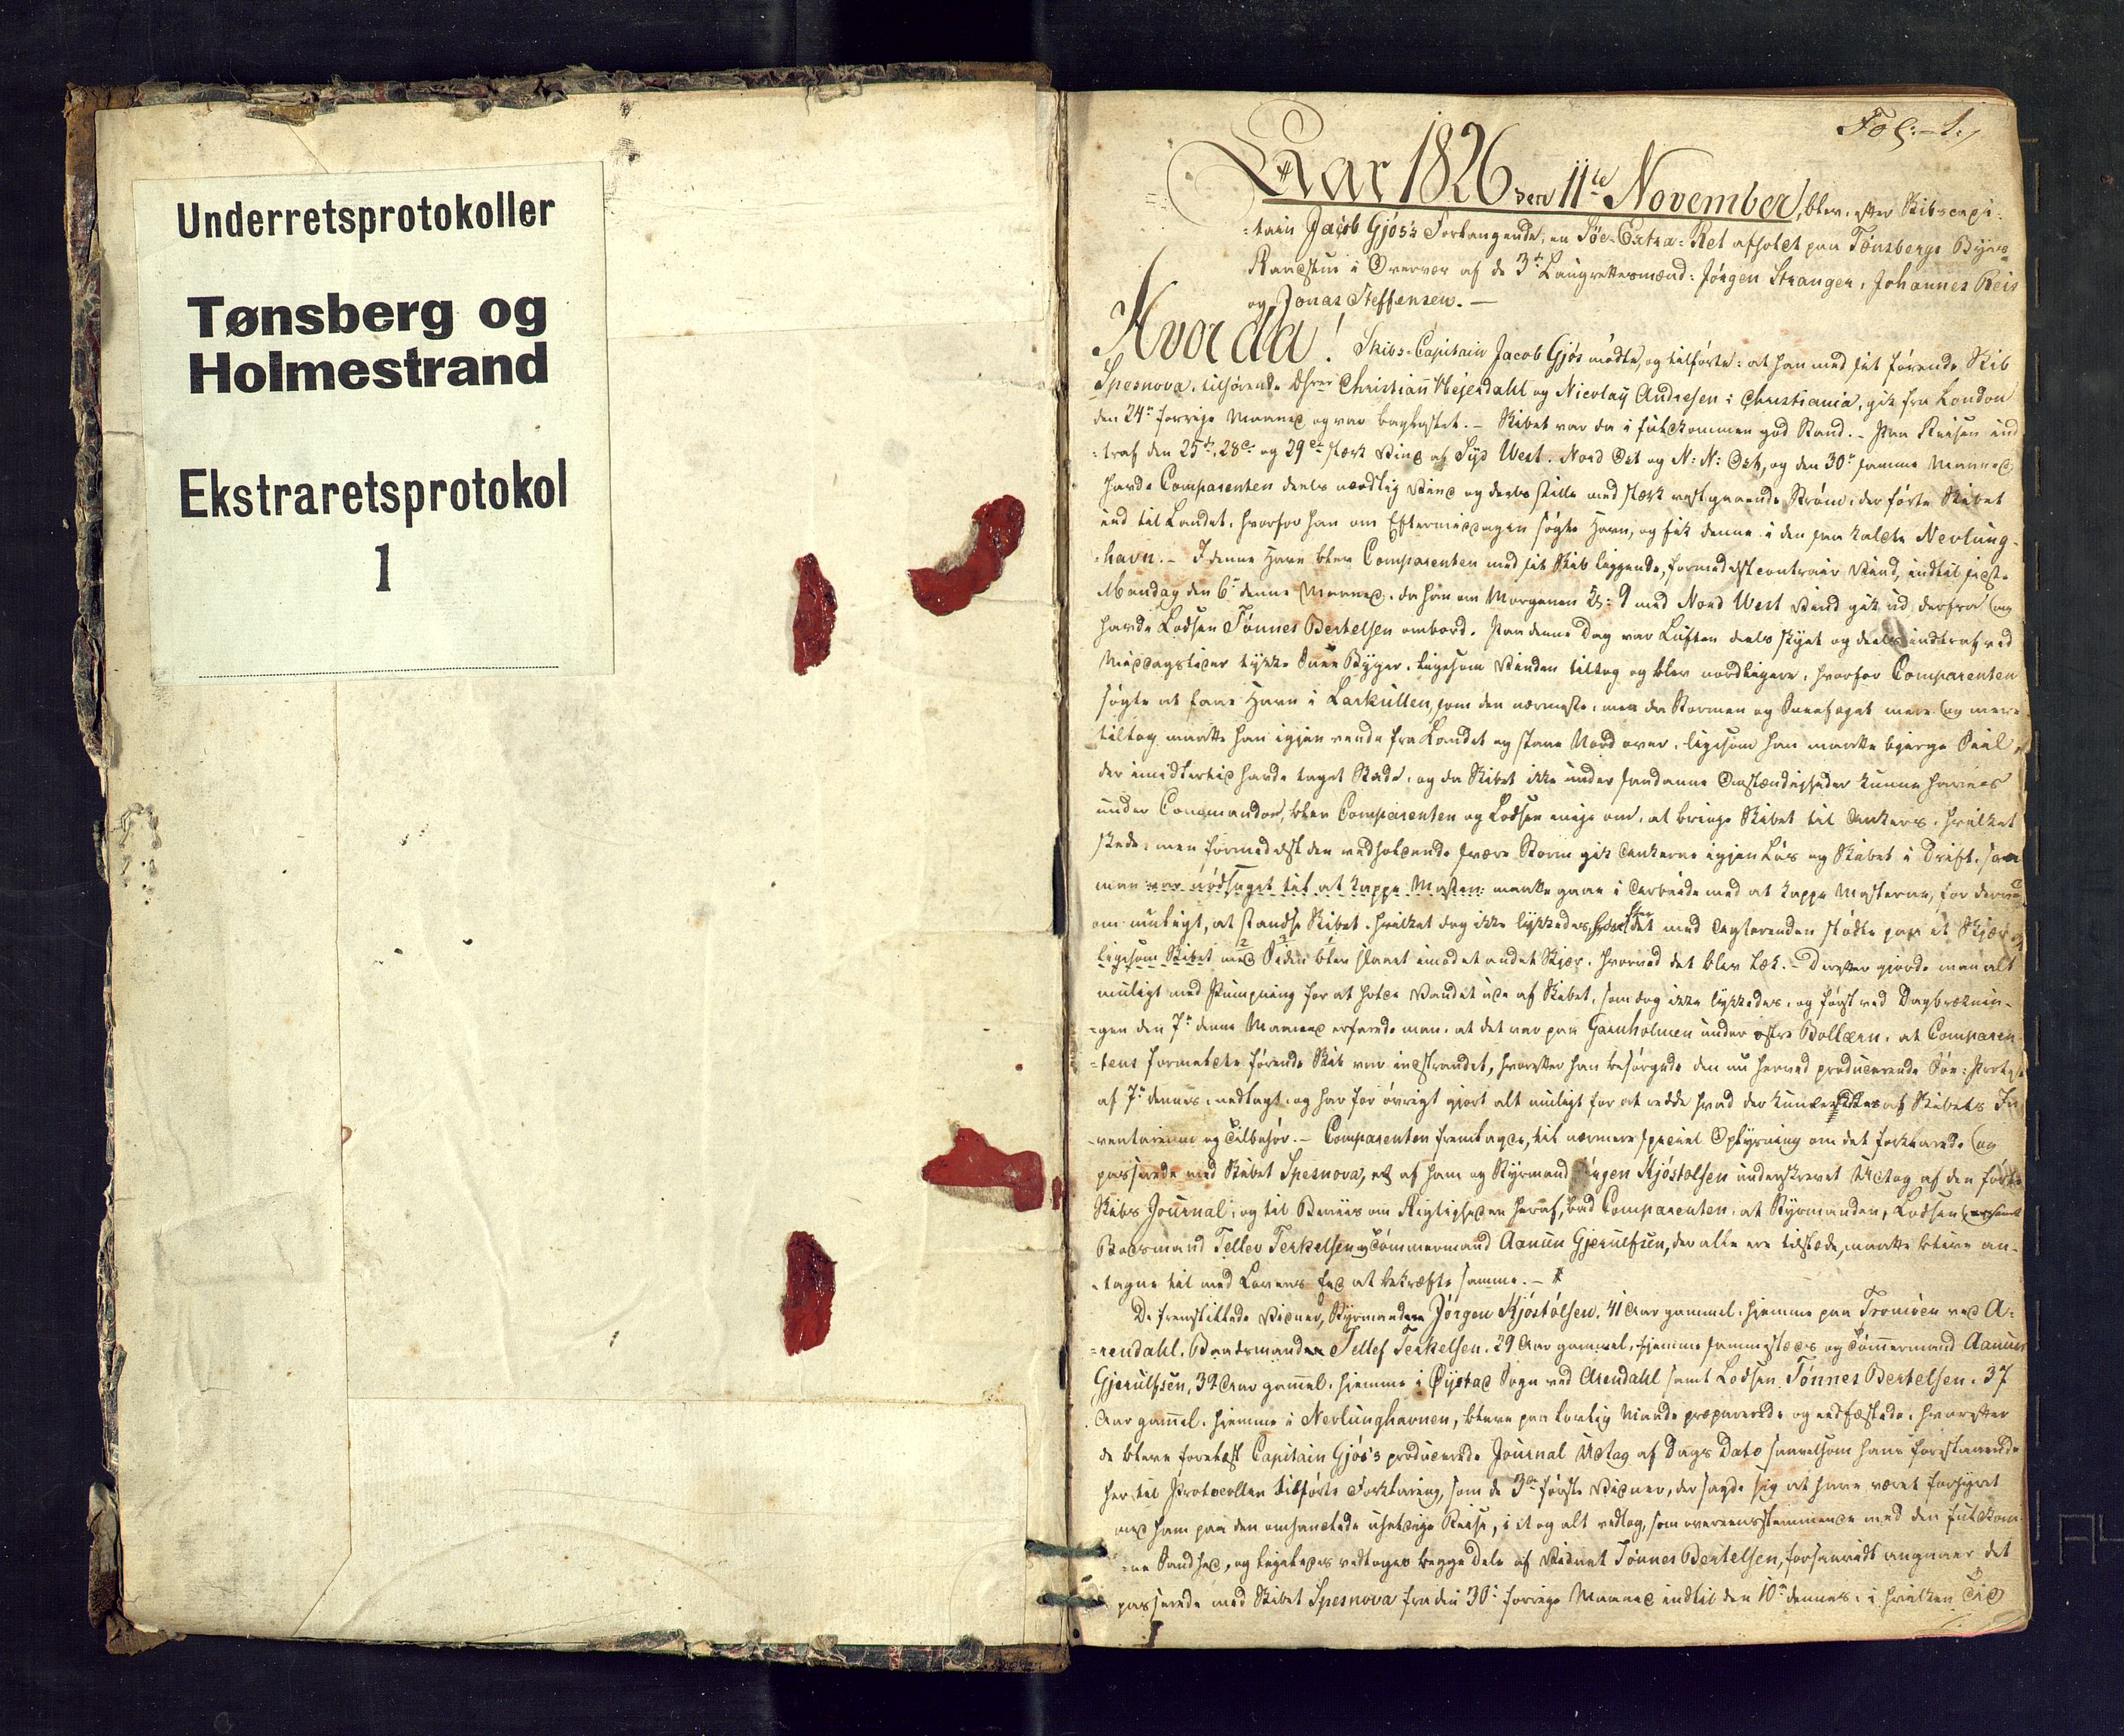 Underretsprotokoller
Tønsberg og
Holmestrand
Ekstraretsprotokol
1
Fol: 1.
Aar 1826 den 11te November, blev, efter Skibscapi-
tain Jacob Gjøs's Forlangende, en Søe-Extra-Ret afholdt paa Tønsbergs Byes
Raadstue i Overvær af de 3de Laugrettesmænd: Jørgen Stranger, Johannes Reis
og Jonas Steffensen. —
Hvor da! Skibs-Capitain Jacob Gjøs mødte, og tilførte: at han med sit førende Skib
Spesnova, tilhørende Christian Hejerdahl og Nicolay Andresen i Christiania, gik fra London
den 24de forrige Maaned og var baglastet. — Skibet var da i fuldkommen god Stand. — Paa Reisen ind-
traf den 25de, 28de og 29de stærk Vind af Syd West. Nord Ost og N: N: Ost, og den 30te samme Maaned
havde Comparenten deels nordlig Vind og deels stille med stærk vestgaaende Strøm, der førte Skibet
ind til Landet, hvorfor han om Eftermiddagen søgte Havn, og fik denne i den saa kaldte Nevlung-
havn. — I denne Havn blev Comparenten med sit Skib liggende, formedelst contrair Vind, indtil sidste
Mandag den 6te denne Maaned, da han om Morgenen Kl: 9 med Nord West Vind gik ud derfra og
havde Lodsen Tønnes Bertelsen ombord. Paa denne Dag var Luften deels skyet og deels indtraf ved
Middagstider tykke Snee Byger, ligesom Vinden tiltog og blev nordligere, hvorfor Comparenten
søgte at faae Havn i Larkullen, som den nærmeste, men da Stormen og Sneefoget mere og mere
tiltog maatte han igjen vende fra Landet og staae Nord over, ligesom han maatte bjerge Seil,
der imidlertid havde taget Skade, og da Skibet ikke under saadanne Omstændigheder kunne haves
under Commando, blev Comparenten og Lodsen enige om, at bringe Skibet til Ankers, hvilket
skede, men formedelst den vedholdende svære Storm gik Ankerne igjen løs og Skibet i Drift, saa
man var nødsaget til at kappe Masten: maatte gaae i Arbeide med at kappe Masterne, for derved
om muligt, at standse Skibet, hvilket dog ikke lykkedes, det med Agterenden stødte paa et Skjær og
ligesom Skibet med Siden blev slaaet imod et andet Skjær, hvorved det blev læk. — Derefter gjorde man alt
muligt med Pumpning for at holde Vandet ude af Skibet, som dog ikke lykkedes, og først ved Dagbræknin-
gen den 7de denne Maaned erfarede man, at det var paa Garnholmen under østre Bollæren, at Comparen-
tens formeldte førende Skib var indstrandet, hvorefter han besørgede den nu herved producerende Søe-Protest
af 7de dennes nedlagt, og har for øvrigt gjort alt muligt for at redde hvad der kunde af Skibets In-
ventarium og Tilbehør. — Comparenten fremlagde, til nærmere speciel Oplysning om det forklarede og
passerede med Skibet Spesnova, et af ham og Styrmand Jørgen Kjøstolsen underskrevet Udtog af den førte
Skibs Journal, og til Beviis om Rigtigheden heraf, bad Comparenten, at Styrmanden, Lodsen
Baadsmand Tellev Terkelsen og Tømmermand Aanun Gjerulfsen, der alle ere tilstæde, maatte blive an-
tagne til med Lovens Eed at bekræfte samme. —
De fremstillede Vidner, Styrmanden Jørgen Kjøstolsen, 41 Aar gammel, hjemme paa Tromøen ved A-
rendahl, Baadsmanden Tellef Terkelsen, 29 Aar gammel, hjemme sammesteds og Tømmermand Aanun
Gjerulfsen, 32 Aar gammel, hjemme i Øjestad Sogn ved Arendahl samt Lodsen Tønnes Bertelsen, 37
Aar gammel, hjemme i Nevlunghavnen, bleve paa lovlig Maade præparerede og eedfæstede, hvorefter
de bleve forelæst Capitain Gjøs's producerede Journal Udtog af Dags Dato saavelsom hans forestaaende
her til Protocollen tilførte Forklaring, som de 3de første Vidner, der sagde sig at have været forhyret
med ham paa den omhandlede uheldige Reise, i et og alt vedtog, som overeensstemmende med den fuldkom-
ne Sandhed, og ligeledes vedtoges begge Dele af Vidnet Tønnes Bertelsen, forsaavidt angaaer det
passerede med Skibet Spesnova fra den 30te forrige Maaned indtil den 10de dennes, i hvilken Tid